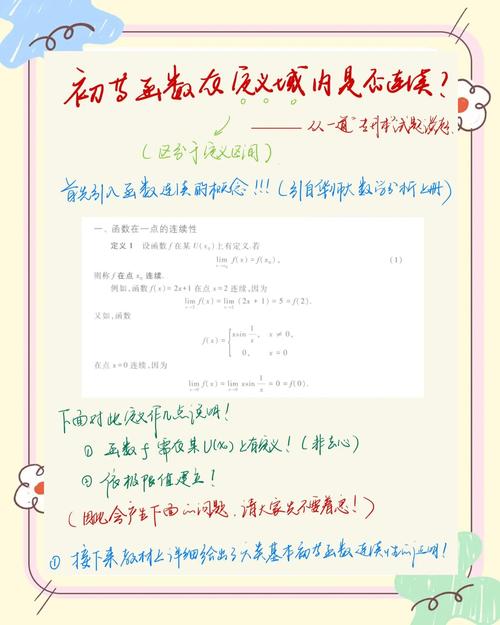 初等函数在定义域内是否连续?
——从一道"专升本"试题说起.
(区分于定义区间)
首先引入函数连续的概念!!!(引自华师大数学分析上册)
一、函数在一点的连续性
定义 1 设函数 f 在某 U(x₀)上有定义.若
lim f(x)=f(x₀), (1)
x→x₀
则称 f 在点 x₀ 连续.
例如,函数 f(x)=2x+1 在点 x=2 连续,因为
lim f(x)=lim (2x+1)=5=f(2).
x→2 x→2
又如,函数
f(x)={ x sin 1/x, x≠0,
0, x=0
在点 x=0 连续,因为
lim f(x)=lim x sin 1/x=0=f(0).
x→0 x→0
下面对此定义作几点说明!
① 函数 f 需在某U(x₀)上有定义!(非去心)
② 依极限值建立!
(因此会产生下面的问题,请大家先不要着急!)
① 接下来教材上详细给出了六类基本初等函数连续性的证明!